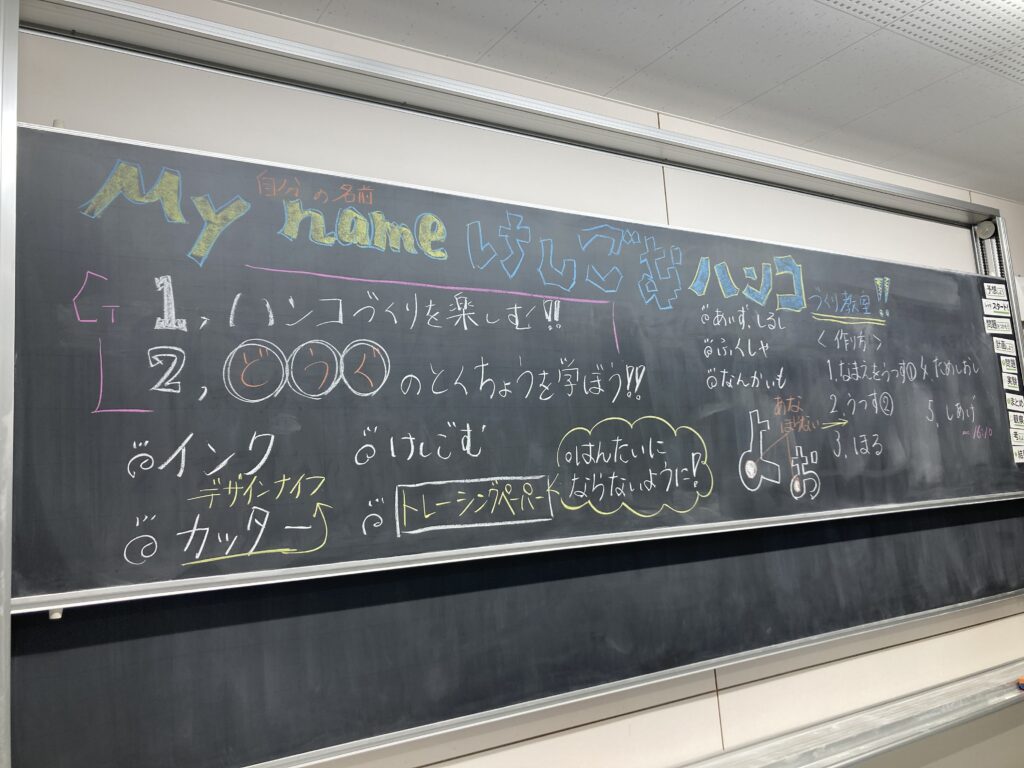 自分の名前
My name けしごむ ハンコ づくり教室!!
G
1, ハンコづくりを楽しむ!!
2, どうぐのとくちょうを学ぼう!!
インク
けしごむ
デザインナイフ
カッター
トレーシングペーパー
はんたいに
ならないように!
あいず、しるし
ふくしゃ
なんかいも
あな
<作り方>
1.なまえをうつす①
2.うつす②
3.ほる
4.ためしおし
5.しあげ
16:10
予想
スタート
問題
計画
実験
まとめ